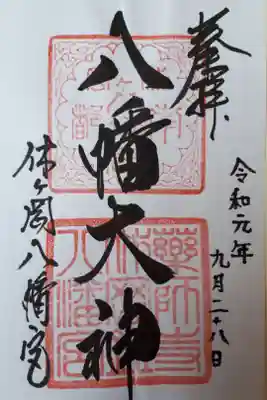 奉拝
令和元年
九月二十八日
八幡大神
休ヶ岡八幡宮